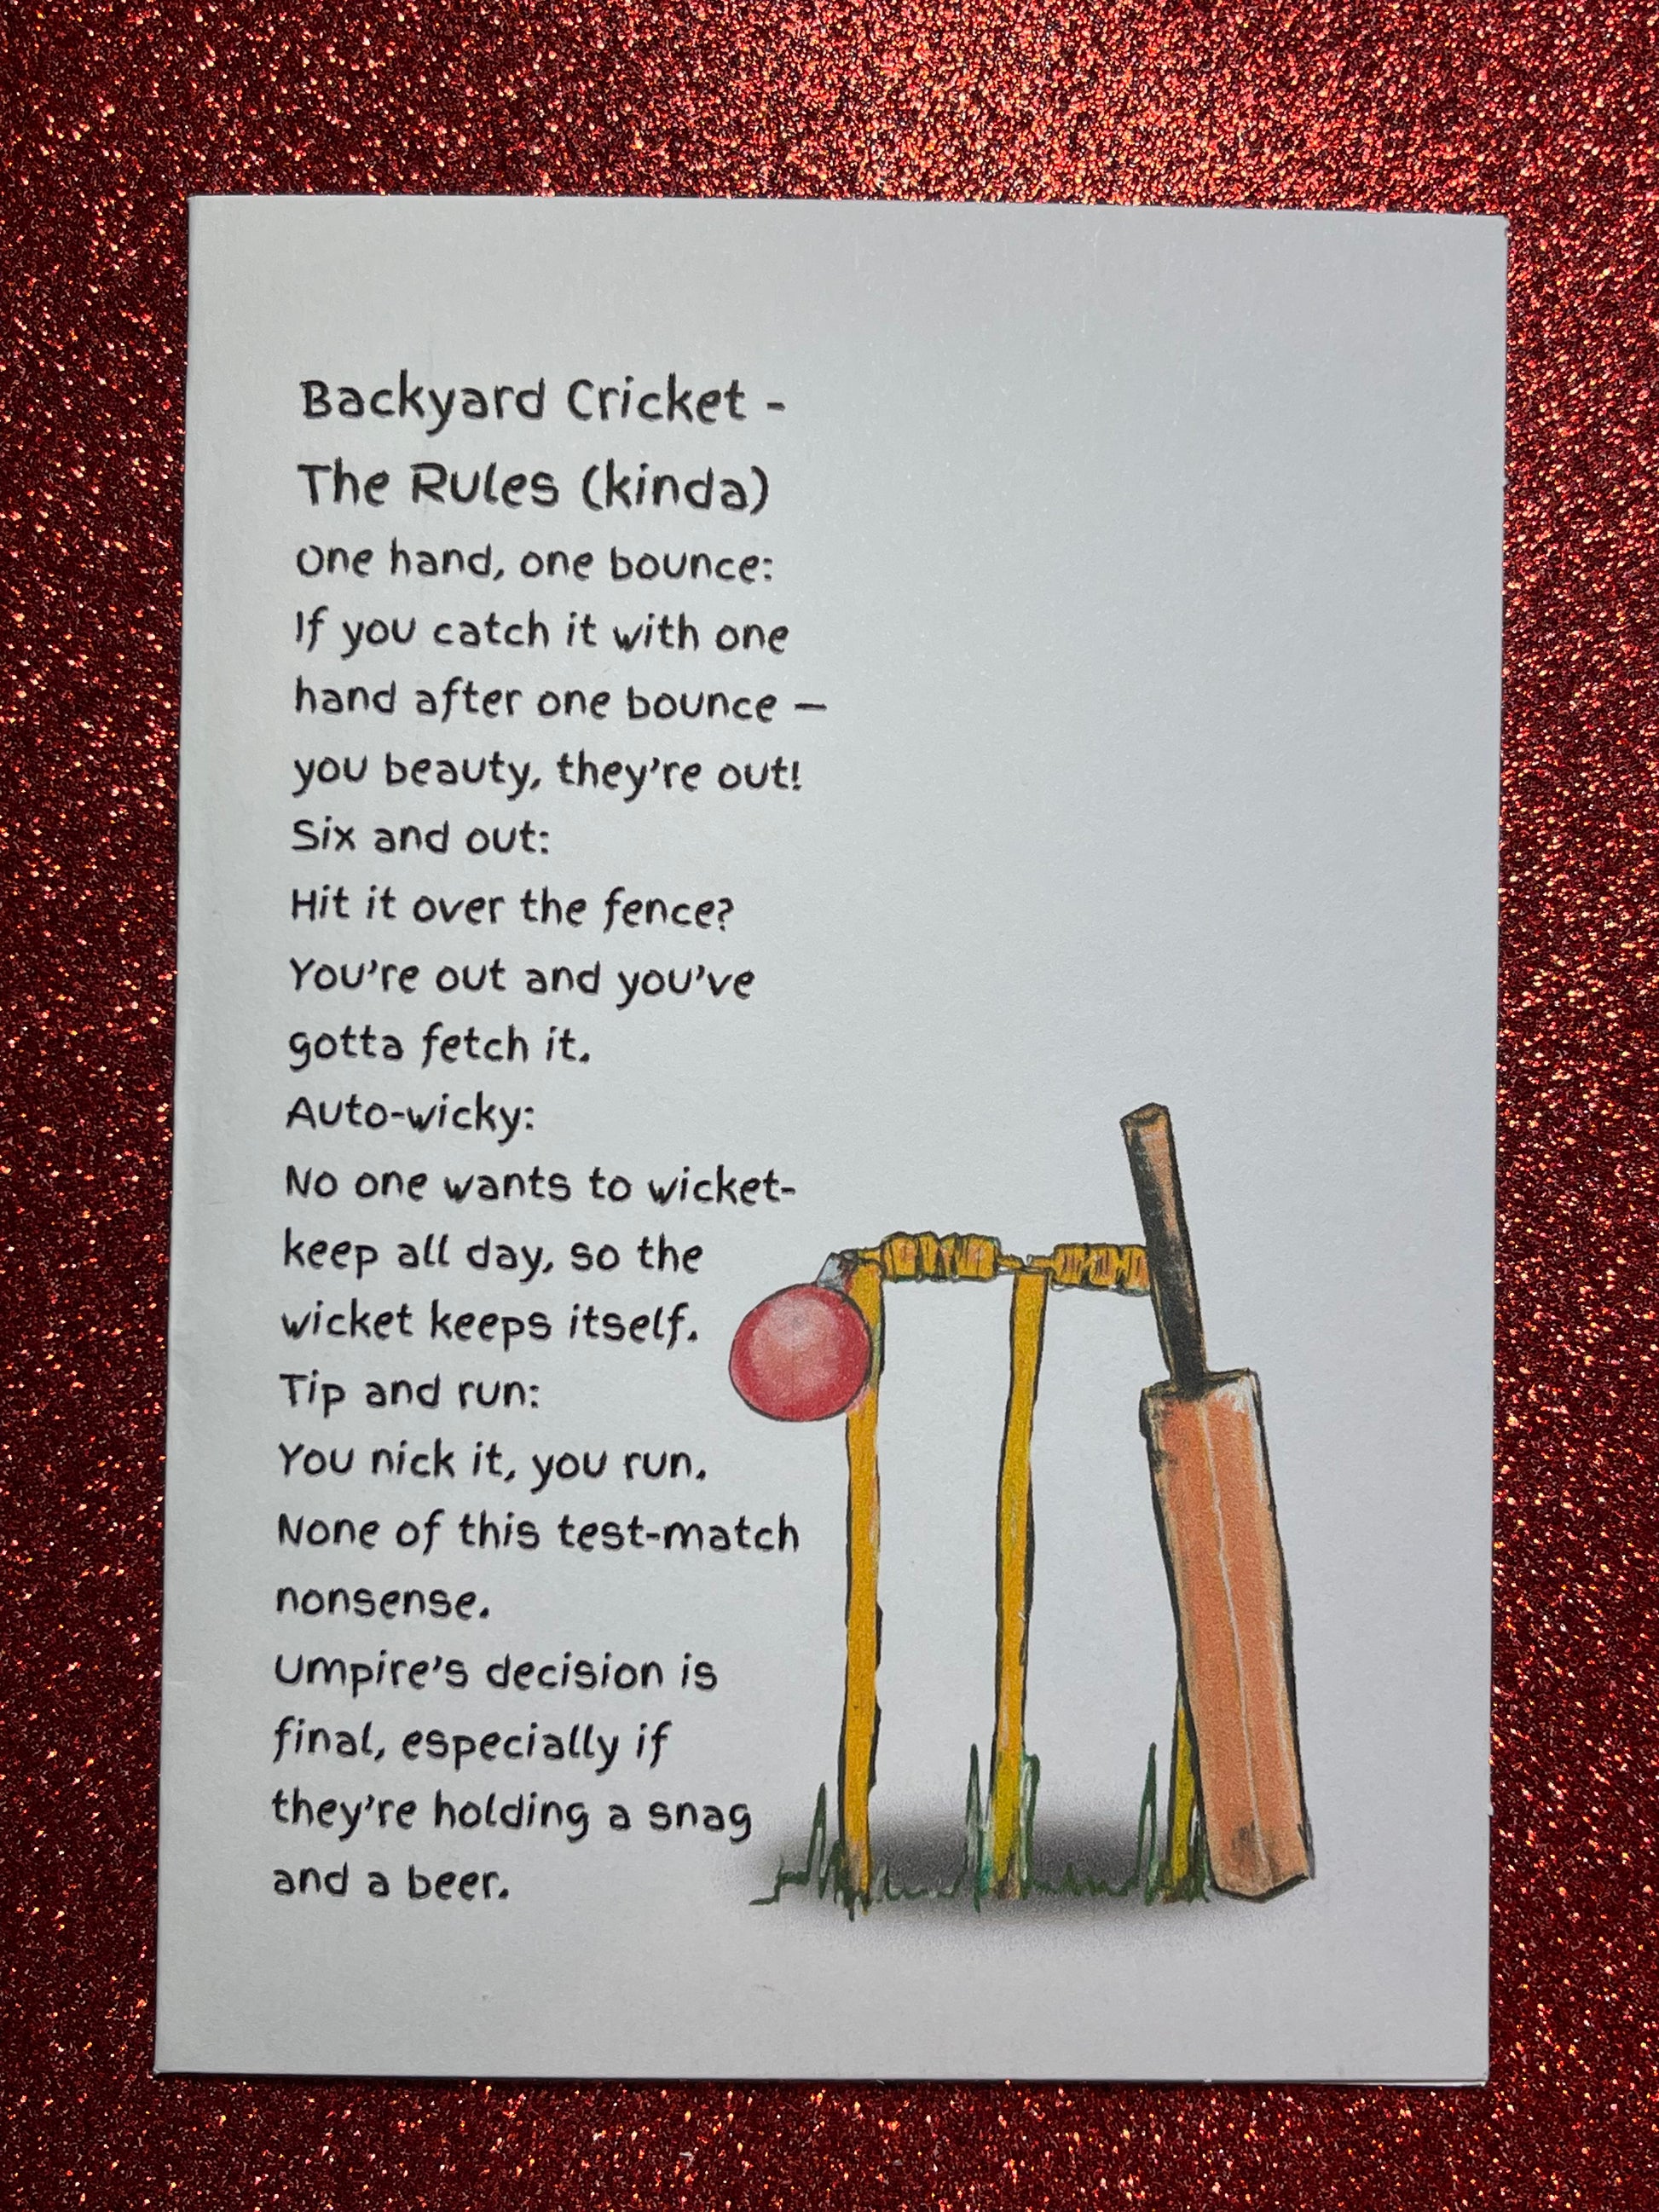 Backyard Cricket -
The Rules (kinda)
One hand, one bounce:
If you catch it with one
hand after one bounce –
you beauty, they're out!
Six and out:
Hit it over the fence?
You're out and you've
gotta fetch it.
Auto-wicky:
No one wants to wicket-
keep all day, so the
wicket keeps itself.
Tip and run:
You nick it, you run.
None of this test-match
nonsense.
Umpire's decision is
final, especially if
they're holding a snag
and a beer.